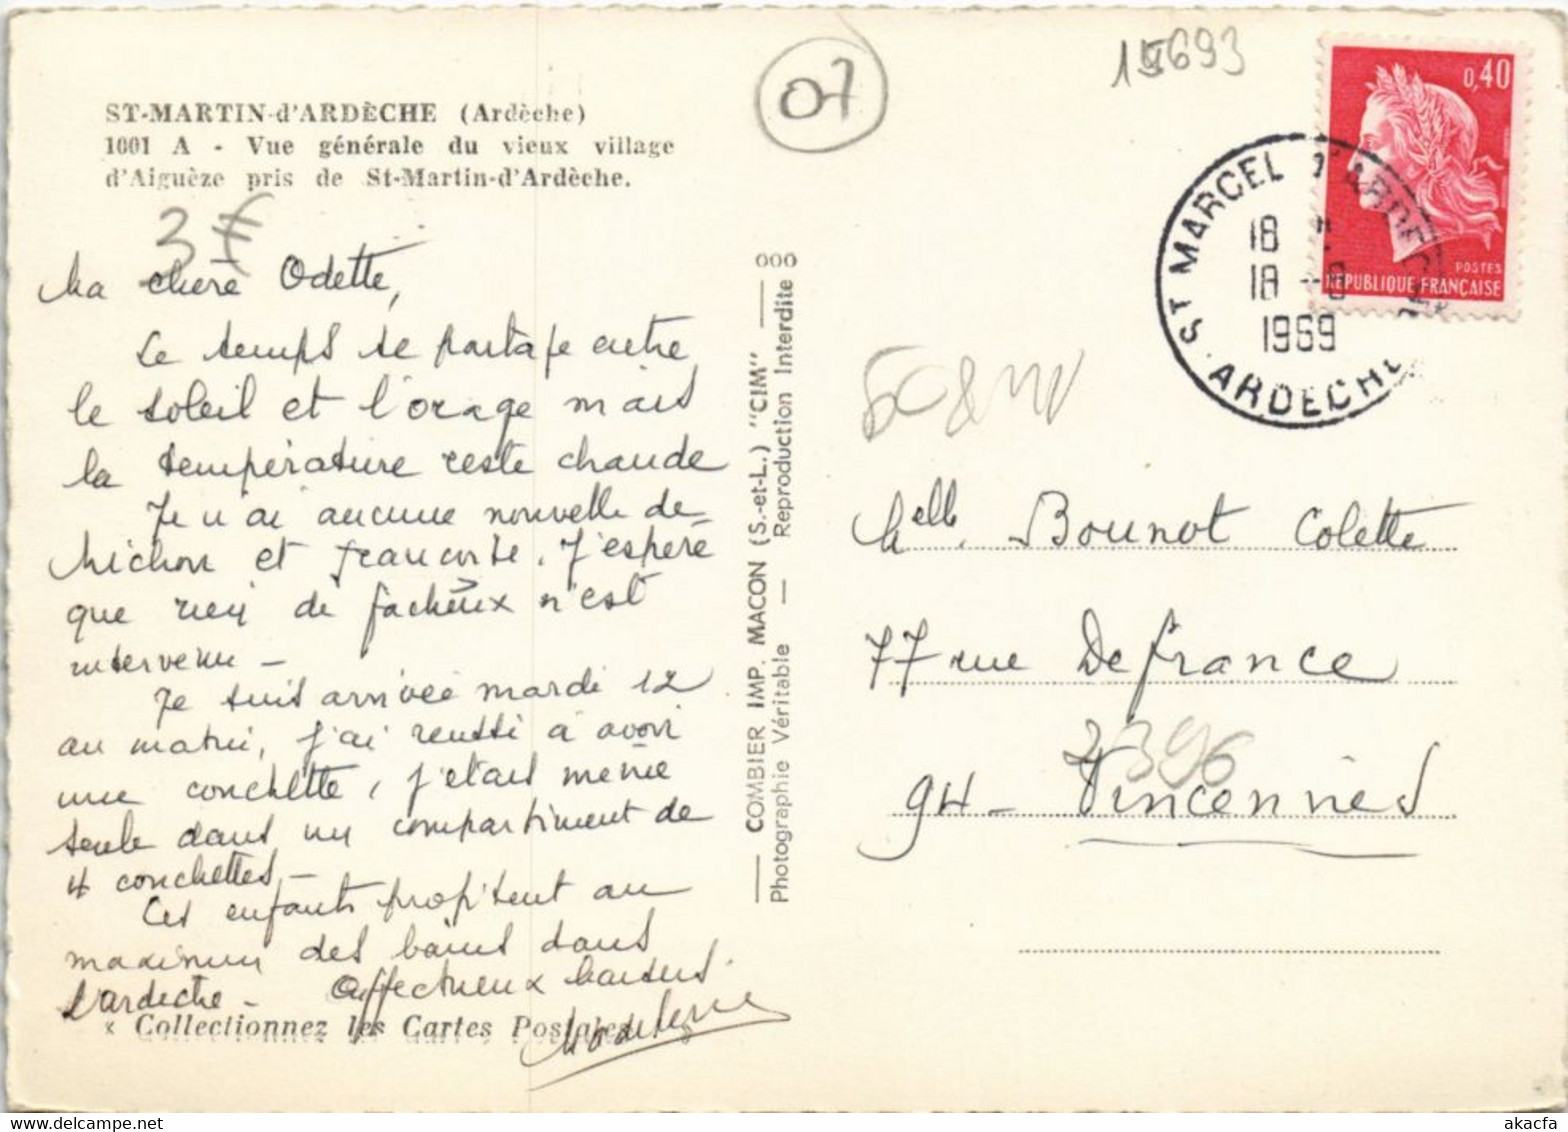 ST-MARTIN-d'ARDÈCHE (Ardèche)
1001 A - Vue générale du vieux village
d'Aiguèze pris de St-Martin-d'Ardèche.
3€
07
693
0,40
POSTES
REPUBLIQUE FRANÇAISE
ST MARCEL D'ARDECHE
18
18 -8
1969
ARDECHE
Ma chère Odette,
Le temps se partage entre
le soleil et l'orage mais
la température reste chaude
Je n'ai aucune nouvelle de
Michou et Francoise. J'espère
que rien de facheux n'est
intervenu -
Je suis arrivée mardi 12
au matin, j'ai reussi a avoir
une couchette, j'etais même
seule dans un compartiment de
4 couchettes -
Les enfants profitent au
maximum des bains dans
l'ardeche - Affectueux baisers.
Madeleine
* Collectionnez les Cartes Postales
COMBIER IMP. MACON (S.-et-L.) "CIM"
Photographie Véritable — Reproduction Interdite
000
Melle Bounot Colette
77 rue Defrance
94 - Vincennes
2396
akacfa